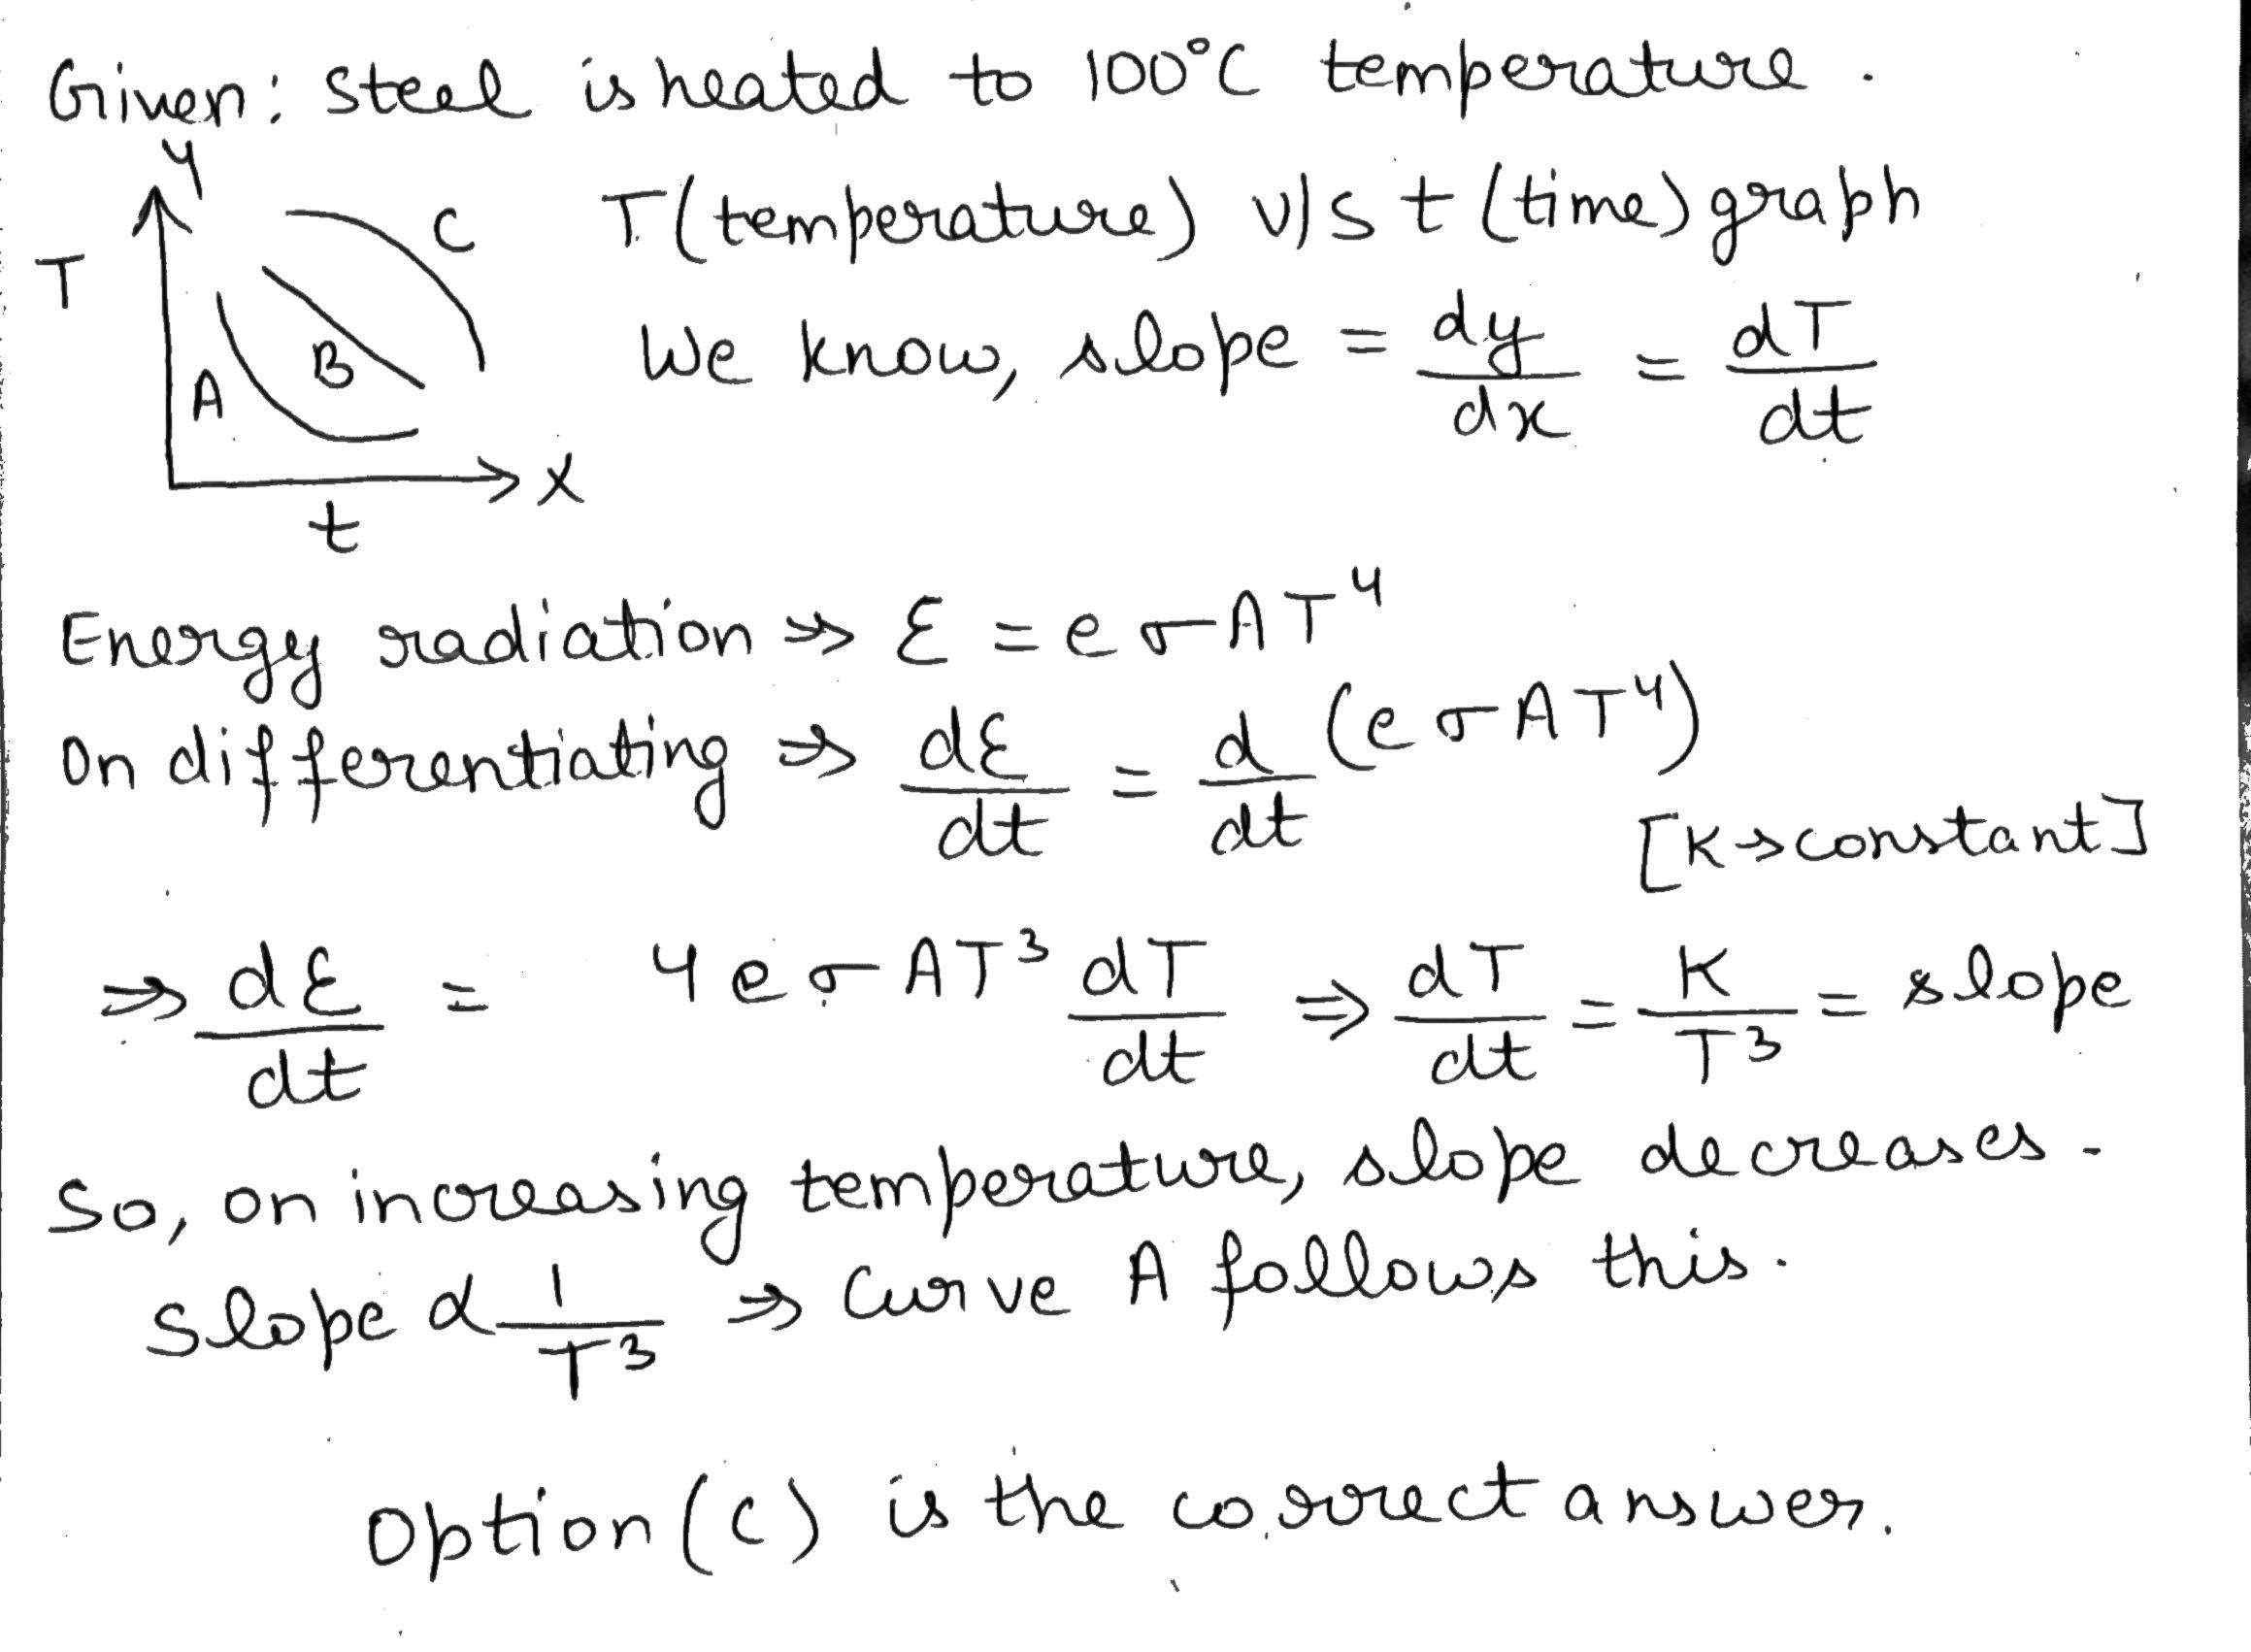 Given: Steel is heated to 100°C temperature.
y
C
T
B
A
x
t
T(temperature) v/s t (time) graph
We know, slope = dy/dx = dT/dt
Energy radiation ⇒ ε = eσAT⁴
On differentiating ⇒ dε/dt = d/dt (eσAT⁴)
[K→constant]
⇒ dε/dt = 4eσAT³ dT/dt ⇒ dT/dt = K/T³ = slope
So, on increasing temperature, slope decreases.
Slope α 1/T³ ⇒ Curve A follows this.
Option (C) is the correct answer.